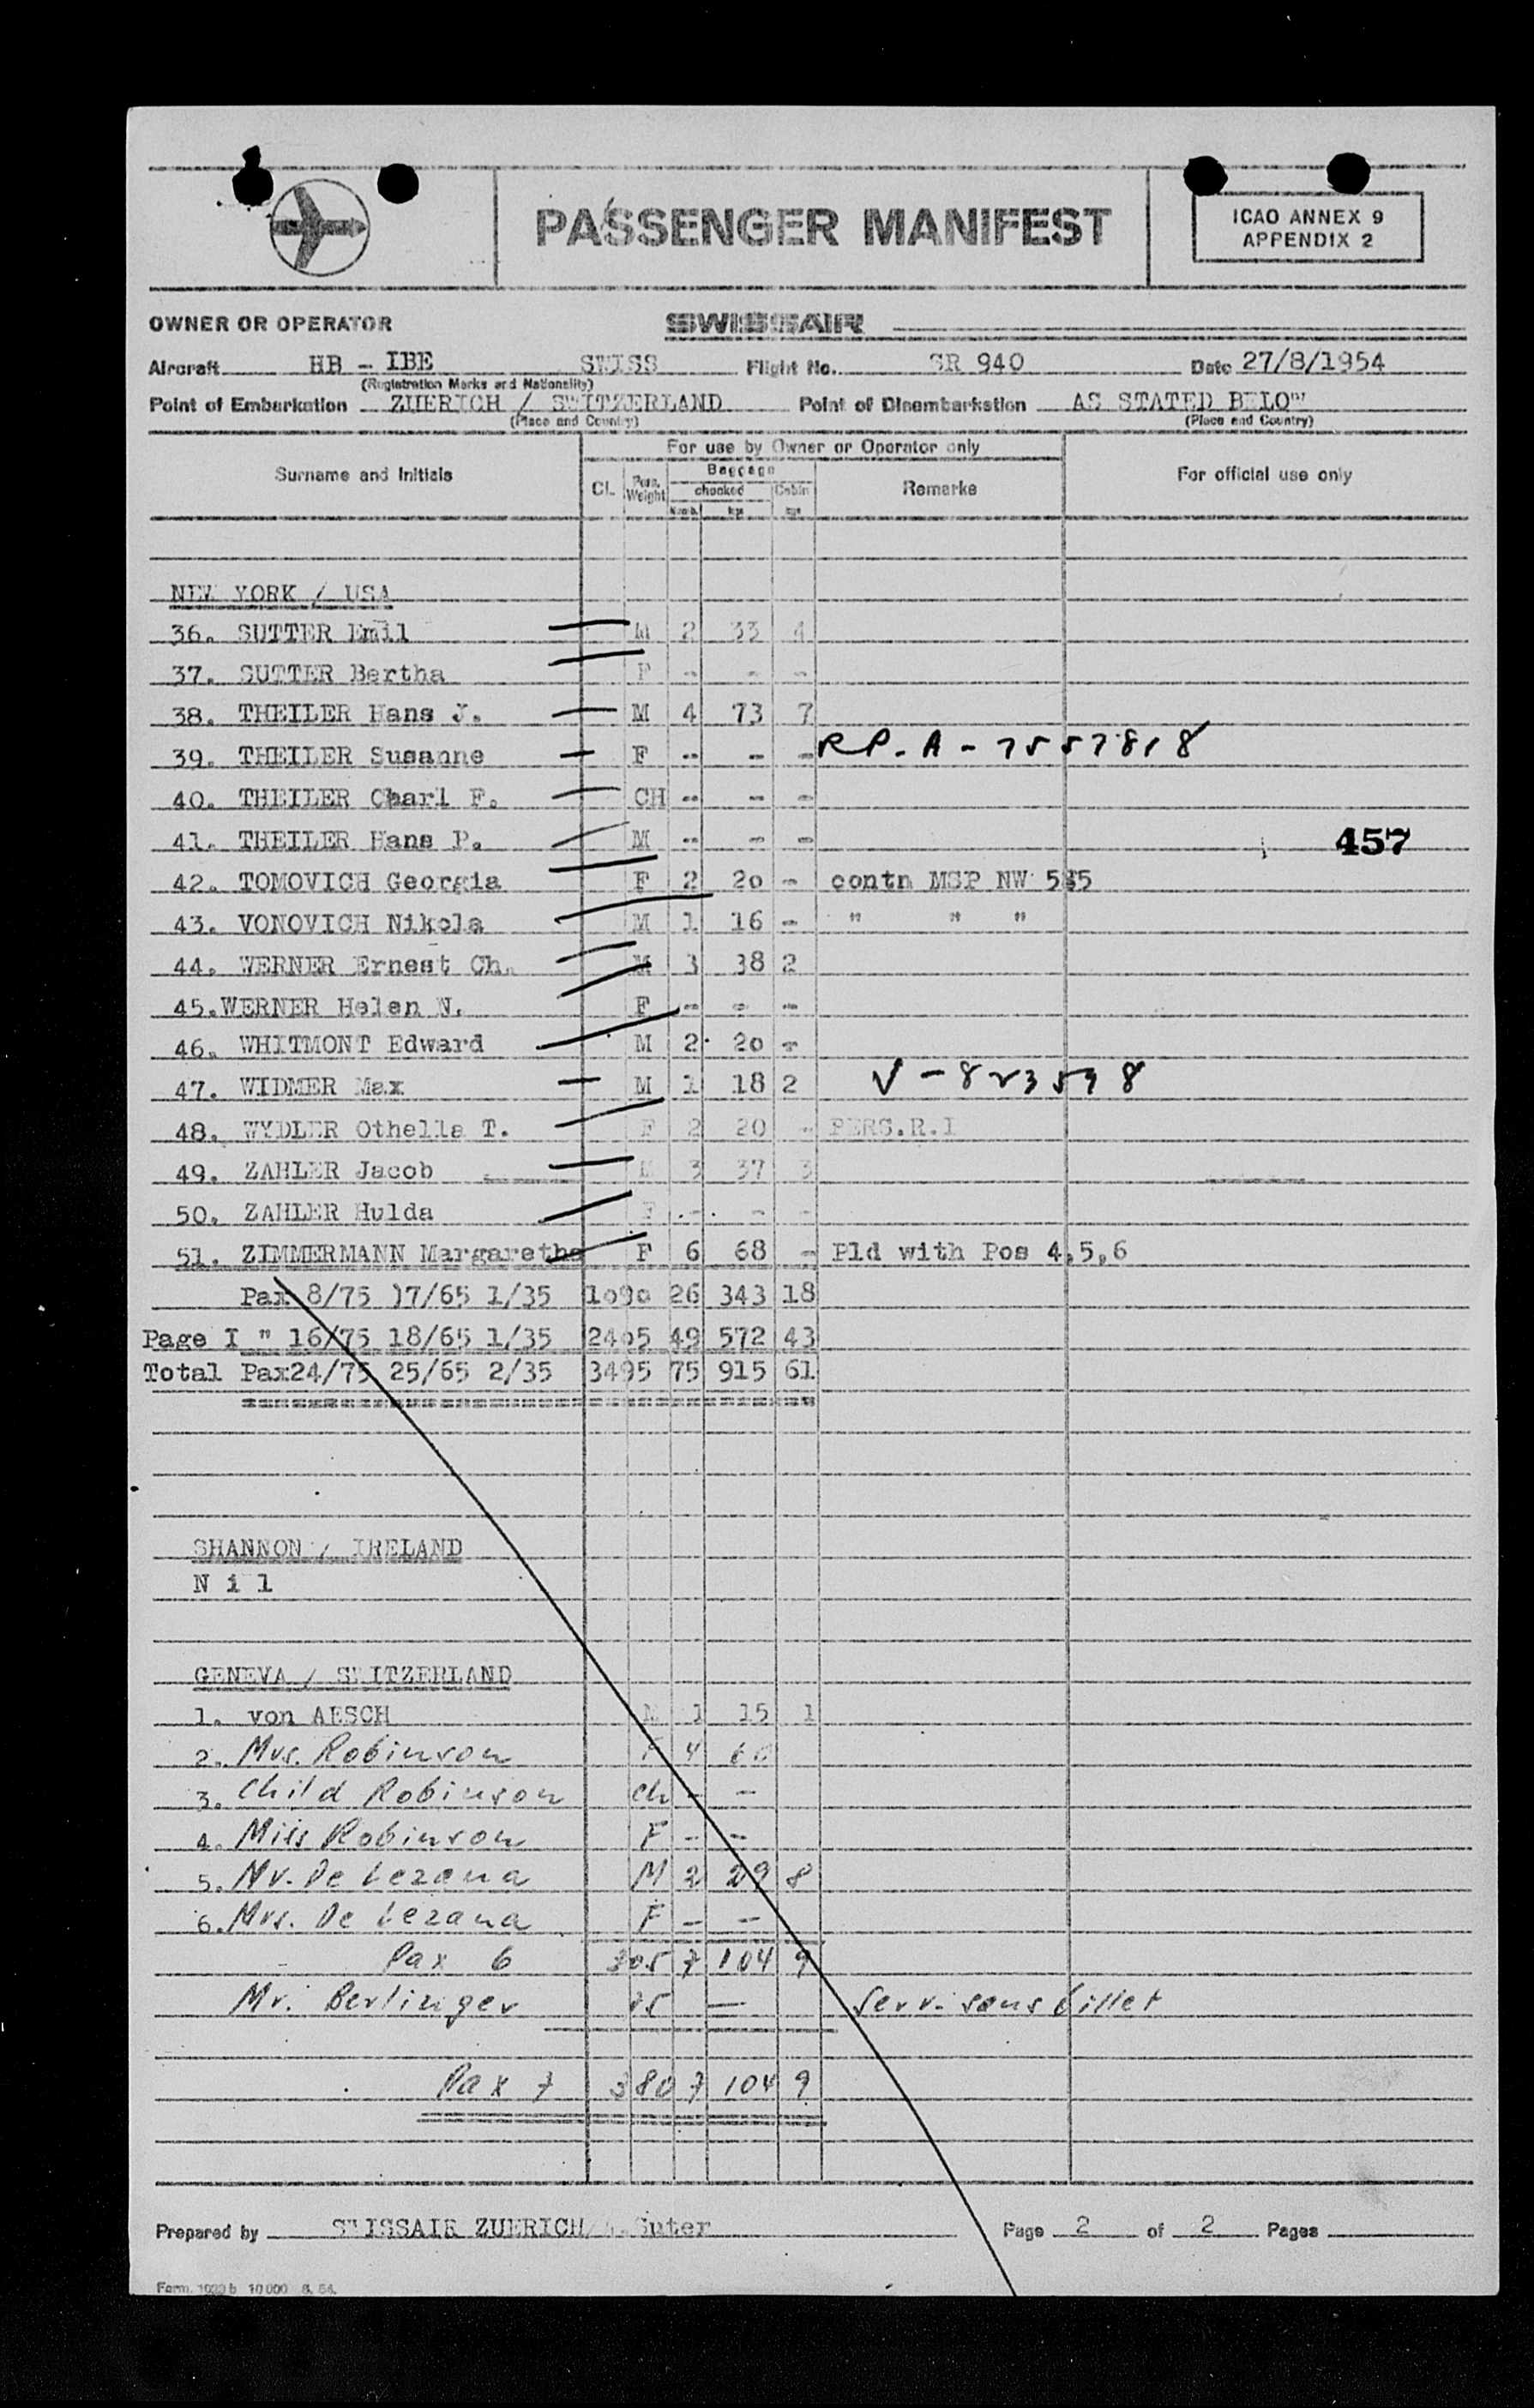 PASSENGER MANIFEST
ICAO ANNEX 9
APPENDIX 2
OWNER OR OPERATOR SWISSAIR
Aircraft HB - IBE SWISS Flight No. SR 940 Date 27/8/1954
(Registration Marks and Nationality)
Point of Embarkation ZUERICH / SWITZERLAND Point of Disembarkation AS STATED BELOW
(Place and Country) (Place and Country)
For use by Owner or Operator only
Surname and Initials Cl. Pass. Weight Baggage checked Numb. kgs Cabin kgs Remarks For official use only
NEW YORK / USA
36. SUTTER Emil M 2 33 4
37. SUTTER Bertha F - - -
38. THEILER Hans J. M 4 73 7
39. THEILER Susanne F - - - RP-A-7557818
40. THEILER Charl F. CH - - -
41. THEILER Hans P. M - - - 457
42. TOMOVICH Georgia F 2 20 - contn MSP NW 5 5
43. VONOVICH Nikola M 1 16 - " " "
44. WERNER Ernest Ch. M 3 38 2
45. WERNER Helen N. F - - -
46. WHITMONT Edward M 2 20 -
47. WIDMER Max M 1 18 2 V-823598
48. WYDLER Othella T. F 2 20 - PERS.R.I
49. ZAHLER Jacob M 3 37 3
50. ZAHLER Hulda F - - -
51. ZIMMERMANN Margaretha F 6 68 - Pld with Pos 4,5,6
Pax 8/75 17/65 1/35 1090 26 343 18
Page I " 16/75 18/65 1/35 2405 49 572 43
Total Pax24/75 25/65 2/35 3495 75 915 61
SHANNON / IRELAND
N i l
GENEVA / SWITZERLAND
1. von AESCH M 1 15 1
2. Mrs. Robinson F 4 60
3. Child Robinson ch - -
4. Miss Robinson F - -
5. Mr. De Lezana M 2 29 8
6. Mrs. De Lezana F - -
Pax 6 305 7 104 9
Mr. Berlinger 75 — Serv. sans billet
Pax 7 380 7 104 9
Prepared by SWISSAIR ZUERICH Suter Page 2 of 2 Pages
Form. 1022 b 10 000 6. 54.